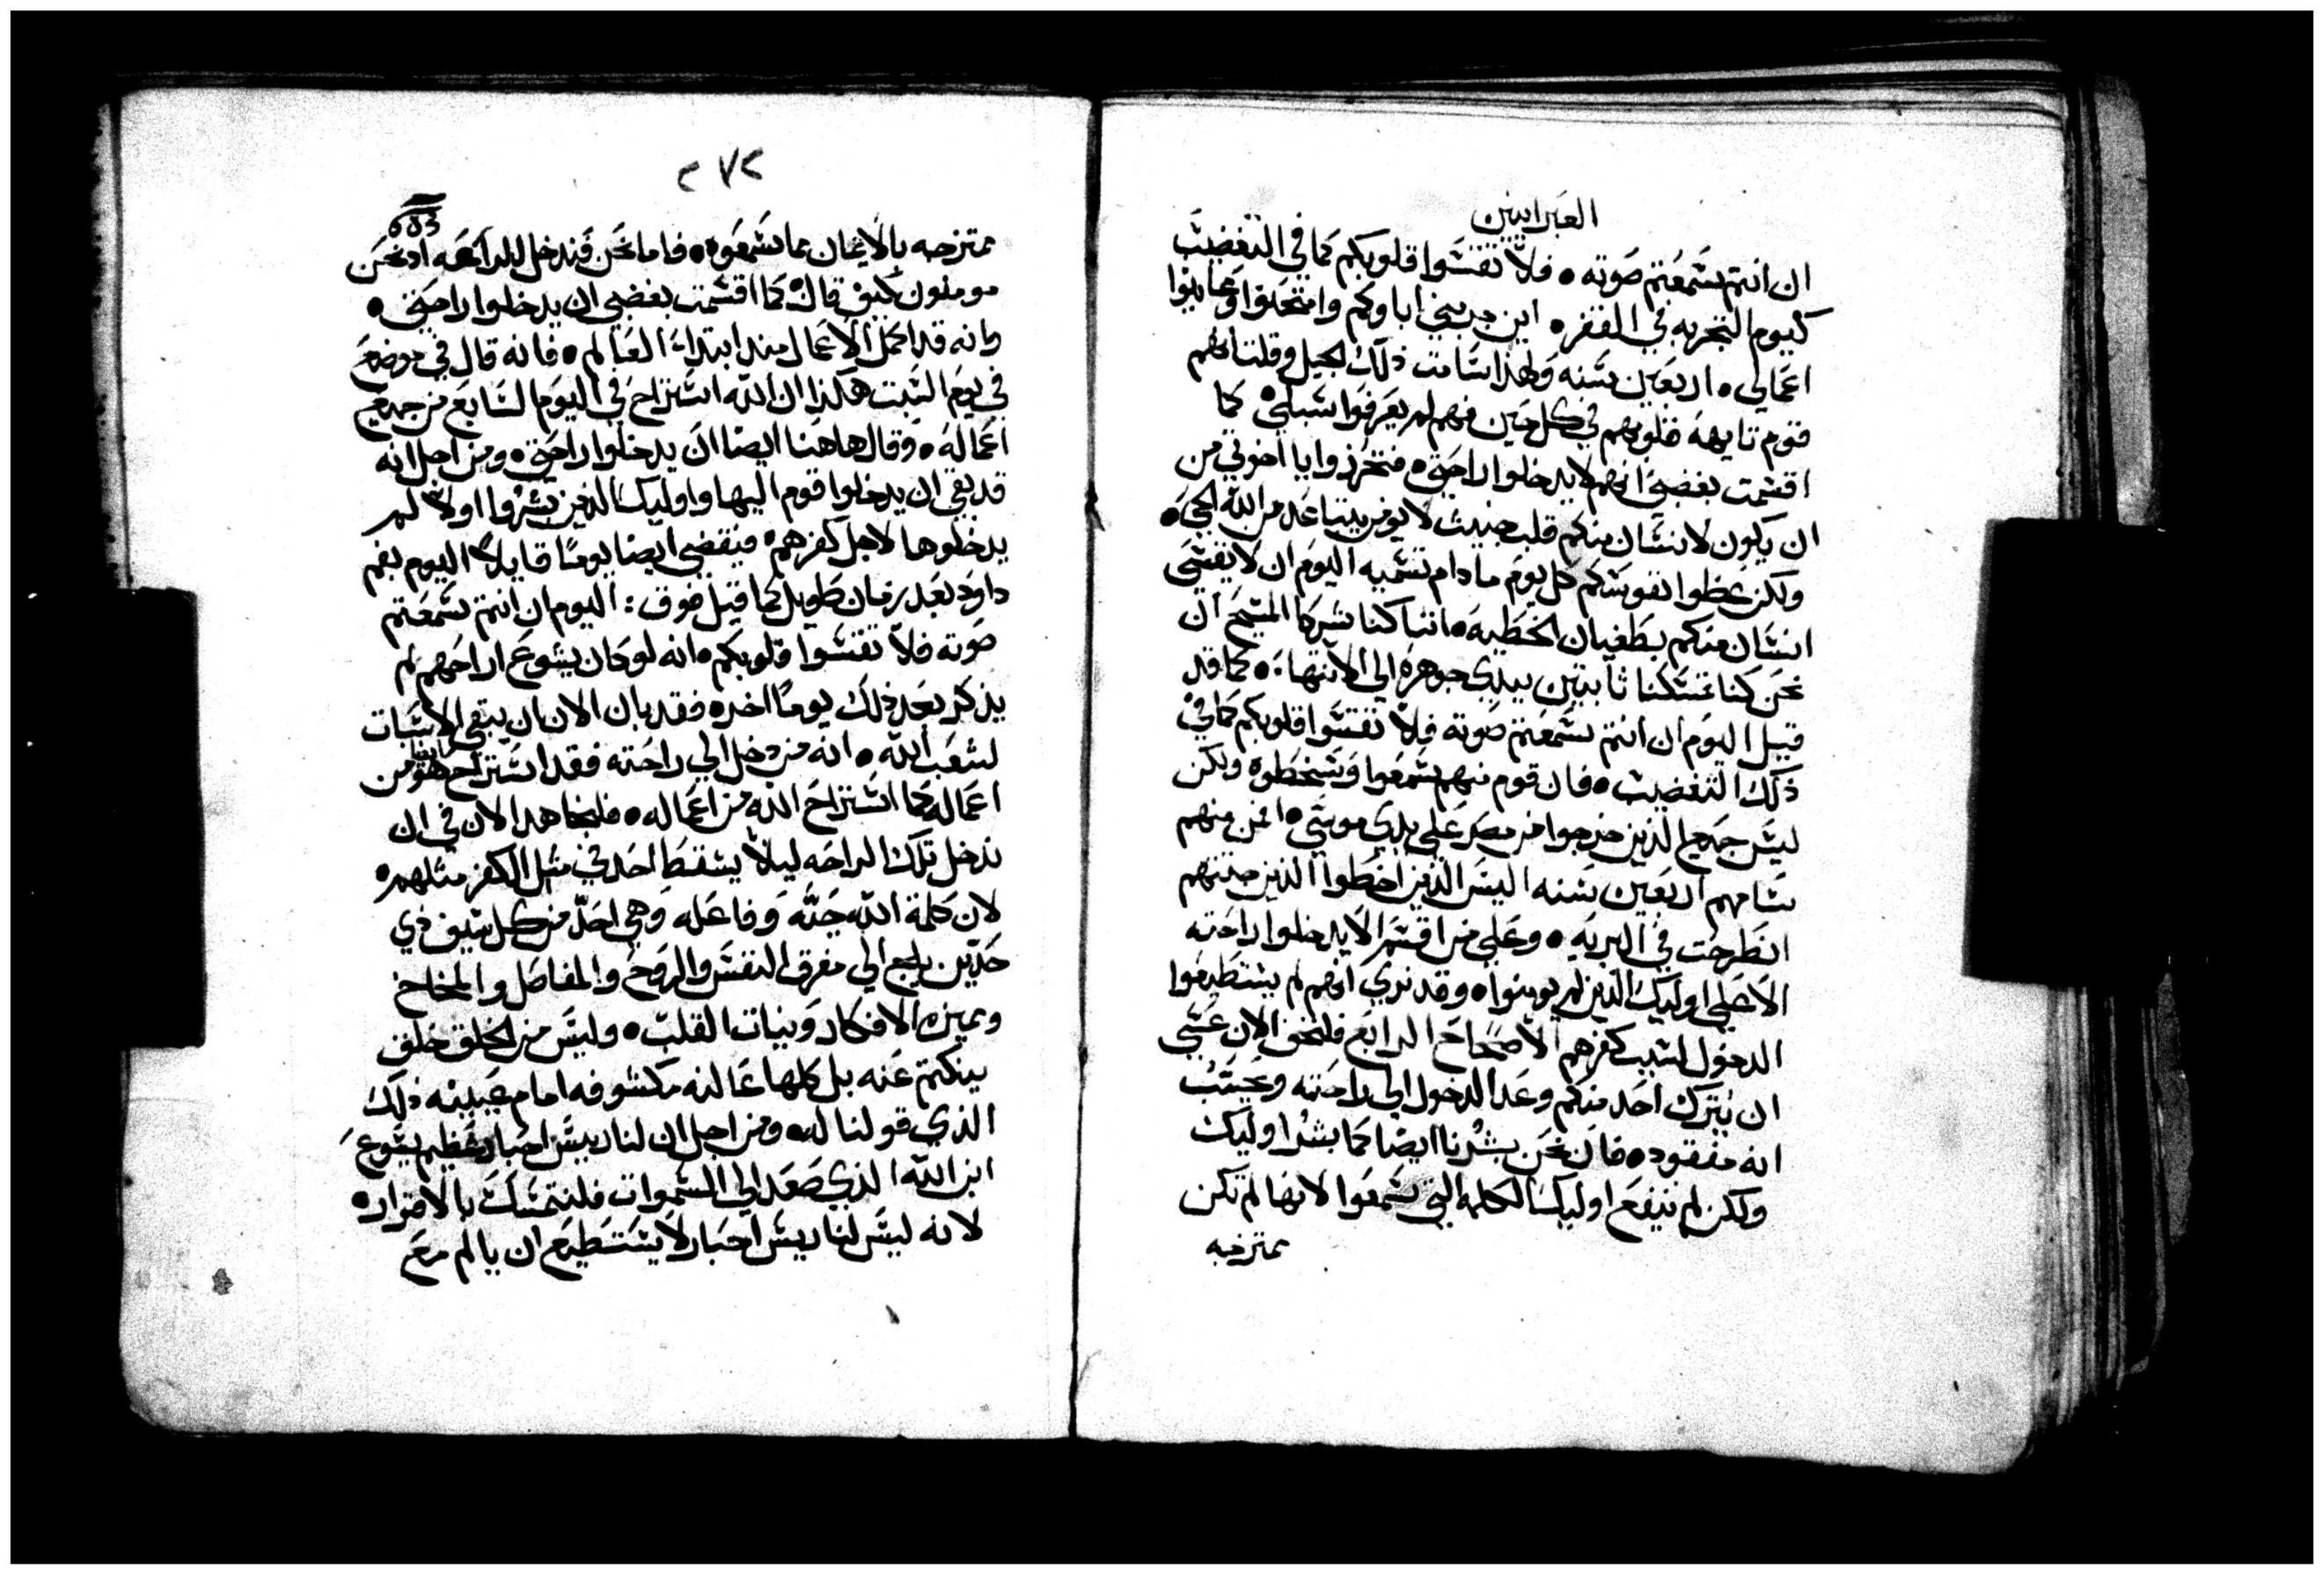 العبرانيين
ان انتم تسمعتم صوته • فلا تقسوا قلوبكم كما في التغضيب
كيوم التجربه في القفر • اين جربني اباوكم وامتحنوا وعاينوا
اعمالي • اربعين سنه ولهذا سامت ذلك الجيل وقلت انهم
قوم تايهه قلوبهم في كل حين فهم لم يعرفوا سبلي • كما
اقسمت بغضبي انهم لا يدخلوا راحتي • فتحرزوا يا اخوتي من
ان يكون لانسان منكم قلب خبيث لا يومن يتباعد من الله الحي •
ولكن عظوا نفوسكم كل يوم ما دام تسميه اليوم ان لا يقسى
انسان منكم بطغيان الخطيه • اننا كنا شركا المسيح ان
نحن كنا تمسكنا ثابتين بيدي جوهره الي الانتهاء • كما قد
قيل اليوم ان انتم تسمعتم صوته فلا تقسوا قلوبكم كما في
ذلك التغضيب • فان قوم منهم سمعوا وسخطوه ولكن
ليس جميع الذين خرجوا من مصر علي يدي موسي • افمن منهم
سامهم اربعين سنه اليس الذين اخطوا الذين جثثهم
انطرحت في البريه • وعلي من اقسم الا يدخلوا راحته
الا علي اوليك الذين لم يومنوا • وقد نري انهم لم يستطيعوا
الدخول لسبب كفرهم الاصحاح الرابع فلنخف الان عسي
ان يترك احد منكم وعد الدخول الي راحته ويحسب
انه مفقود • فان نحن بشرنا ايضا كما بشر اوليك
ولكن لم ينفع اوليك الكلمه التي سمعوا لانها لم تكن
ممتزجه
٢٧٢
ممتزجه بالايمان بما سمعوه • فاما نحن فندخل الراحه اذ نحن
مومنون كيف قال كما اقسمت بغضبي ان يدخلوا راحتي •
وانه قد اكمل الاعمال منذ ابتداء العالم • فانه قال في موضع
في يوم السبت هكذا ان الله استراح في اليوم السابع من جميع
اعماله • وقال هاهنا ايضا ان يدخلوا راحتي • ومن اجل انه
قد بقي ان يدخلوا قوم اليها واوليك الذين بشروا اولا لم
يدخلوها لاجل كفرهم • فيقضي ايضا يوما قايلا اليوم بفم
داود بعد زمان طويل كما قيل فوق : اليوم ان انتم سمعتم
صوته فلا تقسوا قلوبكم • انه لو كان يشوع اراحهم لم
يذكر بعد ذلك يوما اخر • فقد بان الان ان يبقي الاسبات
لشعب الله • انه من دخل الي راحته فقد استراح هو ايضا من
اعماله كما استراح الله من اعماله • فلنجاهد الان في ان
ندخل تلك الراحه ليلا يسقط احد في مثل الكفر مثلهم •
لان كلمة الله حيه وفاعله وهي احد من كل سيف ذي
حدين يلج الي مفرق النفس والروح والمفاصل والمخاخ
ومميزه الافكار ونيات القلب • وليس من الخلق خلق
ينكتم عنه بل كلها عالنه مكشوفه امام عينيه ذلك
الذي قولنا له • ومن اجل ان لنا رييس احبار عظيم يسوع
ابن الله الذي صعد الي السموات فلنتمسك بالاقرار •
لانه ليس لنا رييس احبار لا يستطيع ان يالم مع